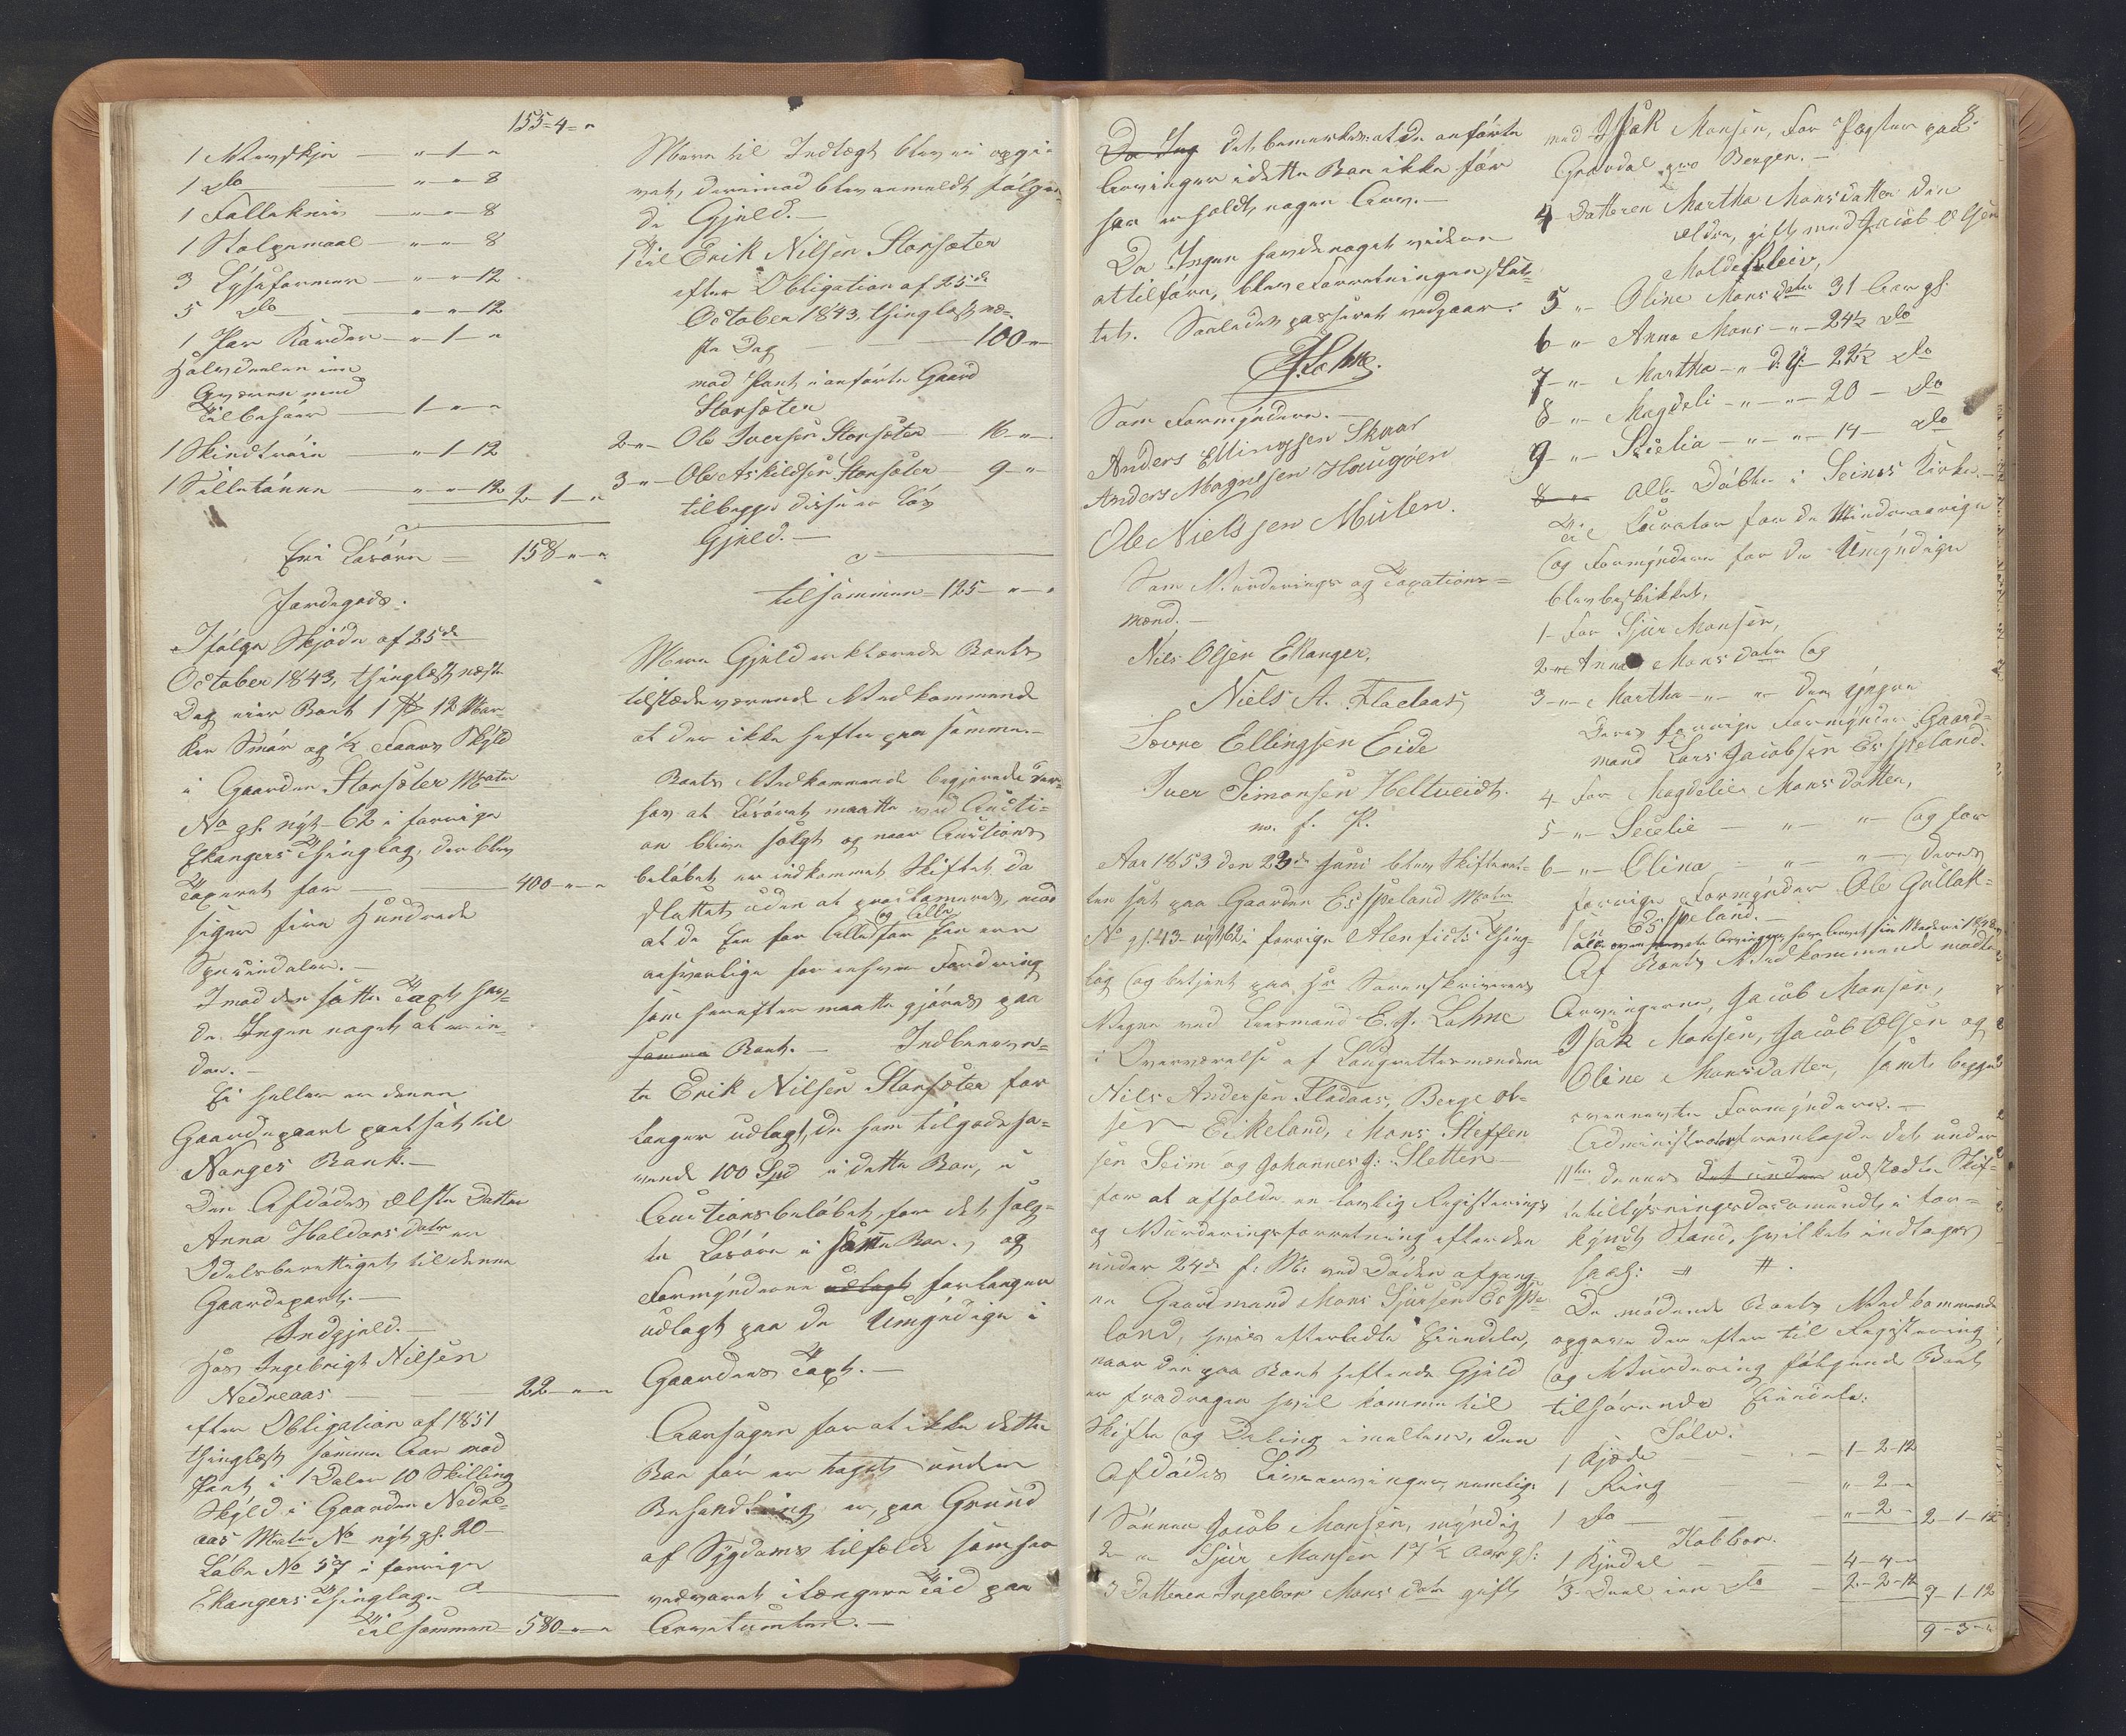 155-4-"
1 Staudkje — "-1-"
1 Do — "-"-8
1 Fallekniv — "-"-8
1 Stolpemaal — "-"-8
3 Lyseformer — "-"-12
5 Do — "-"-12
1 Par Karder — "-1-"
Halvdeelen i en
Qværn med
Tilbehør — 1-"-"
1 Skindtrøie — "-1-12
1 Silletønne — "-"-12 2-1-"
Frie Løsøre — 158-"-"
Jordegods.
Ifølge Skjøde af 25de
October 1843, thinglæst næste
Dag eier Boet 1 ℔ 12 Mar-
ker Smør og ½ Faars Skyld
i Gaarden Storsæter Matr
No gl. nyt 62 i forrige
Ekangers Thinglag, der blev
Taxeret for — 400-"-"
siger fire Hundrede
Speciedaler.-
Imod den satte Taxt hav-
de Ingen noget at erin-
dre.-
Ei heller er denne
Gaardepart pantsat til
Norges Bank.-
Den Afdødes ældste Datter
Anna Haldors datr er
Odelsberettiget til denne
Gaardepart.-
Indgjeld.-
Hos Ingebrigt Nilsen
Nedreaas — 22-"-"
efter Obligation af 1851
thinglæst samme Aar mod
Pant i 1 Daler 10 Skilling
Skyld i Gaarden Nedre-
aas Matr No nyt gl. 20-
Løbe No 57 i forrige
Ekangers Thinglag.
Tilsammen 580-"-"
Mere til Indtægt blev ei opgi-
vet, derimod blev anmeldt følgen-
de Gjeld.-
1 Til Erik Nilsen Storsæter
efter Obligation af 25de
October 1843, thinglæst næ-
ste Dag — 100-"-
mod Pant i anførte Gaard
Storsæter
2-"- Ole Iversen Storsæter — 16-"-
3-"- Ole Askildsen Storsæter — 9-"-
tilbage disse er løs
Gjeld.-
tilsammen 125-"-"
Mere Gjeld erklærede Boets
tilstedeværende Vedkommende
at der ikke hefter paa samme.-
Boets Vedkommende begjerede der-
hos at Løsøret maatte ved Aucti-
on blive solgt og naar Auctions
beløbet er indkommet Skiftet da
sluttet uden at proclameres, mod
at de Een for Alle og Alle for Een ere
ansvarlige for enhver Fordring
som herefter maatte gjøres paa
samme Boet.- Indbenævn-
te Erik Nilsen Storsæter for
langer udlagt, de ham tilgodeha-
vende 100 Spd i dette Boe, i
Auctionsbeløbet for det solg-
te Løsøre i samme Boe, og
Formynderne udlagt forlanger
udlagt paa de Umyndige i
Gaardens Taxt.-
Aarsagen for at ikke dette
Boe før er taget under
Behandling er paa Grund
af Sygdoms tilfælde som har
vedvaret i længere Tid paa
Arvetomten.-
Da Ing det bemærkes at de anførte
Arvinger i dette Boe ikke før
har erholdt nogen Arv.-
Da Ingen havde noget videre
at tilføre, blev Forretningen slut-
tet. Saaledes passeret vedgaar.-
E. J. Lohne.
Som Formyndere.-
Anders Ellingsen Skaar
Anders Magnesen Haugøen
Ole Nielssen Mulen.
Som Vurderings og Taxations-
mænd.-
Nils Olsen Ekanger,
Niels A. Fladaas
Sevre Ellingsen Eide
Iver Simonsen Heltveidt.
m. f. P.
Aar 1853 den 23de Juni blev Skifteret-
ten sat paa Gaarden Espeland Matr
No gl. 43- nyt 162 i forrige Alenfidts Thing-
lag og betjent paa Hr Sorenskriverens
Vegne ved Leensmand E. J. Lohne
i Overværelse af Laugrettesmændene
Nils Andersen Fladaas, Berge Ol-
sen Eikeland, Mons Steffen
sen Seim og Johannes J: Sletten
for at afholde en lovlig Registerings
og Vurderingsforretning efter den
under 24de f: M: ved Døden afgang-
ne Gaardmand Mons Sjursen Espe-
land, hvis efterladte Eiendele,
naar den paa Boet heftende Gjeld
er fradragen skal komme til
Skifte og Deling imellem den
Afdødes Livsarvinger, nemlig:
1 Sønnen Jacob Monsen, myndig
2 " Sjur Monsen 17½ Aar gl:
3 Datteren Ingebor Mons datr gift
8.
med Isak Monsen, for Pægter paa
Gravdal pro Bergen.-
4- Datteren Martha Monsdatter den
ældre, gift med Jacob Olsen
Moldeklev,
5 " Oline Mons datr 31 Aar gl.
6 " Anna Mons -"- 24½ Do
7 " Martha -"- d: y: 22½ Do
8 " Magdeli -"-"- 20 - Do
9 " Secelia -"-"- 14 - Do
8 " Alle Døbte i Seims Kirke.-
Til Curator for de Mindreaarige
og Formyndere for de Umyndige
blev beskikket,
1- for Sjur Monsen,
2-"- Anna Mons datr og
3-"- Martha -"-"- den yngre
Deres forrige Formynder Gaard-
mand Lars Jacobsen Espeland.
4- for Magdelie Mons datter,
5-"- Secelie — "-"- og for
6-"- Oline "-"-, deres
forrige Formynder Ole Gullak-
sen Espeland.-
Af Boets Vedkommende mødte
Arvingerne, Jacob Monsen,
Isak Monsen, Jacob Olsen og
Oline Monsdatter, samt begge
ovennævnte Formyndere.-
Administrator fremlagde det under
11te dennes det under udstædte Skif-
tetillysningsdocument i for-
kyndt Stand, hvilket indtages
saal: # #.
De mødende Boets Vedkommende
opgave der efter til Registering
og Vurdering følgende Boet
tilhørende Eiendele:
Sølv.
1 Kjæde — 1-2-12
1 Ring — "-2-"
1 Do — "-2-" 2-1-12
Kobber.
1 Kjedel — 4-4-"
⅓ Deel i en Do — 2-2-12 7-1-12
9-3-"